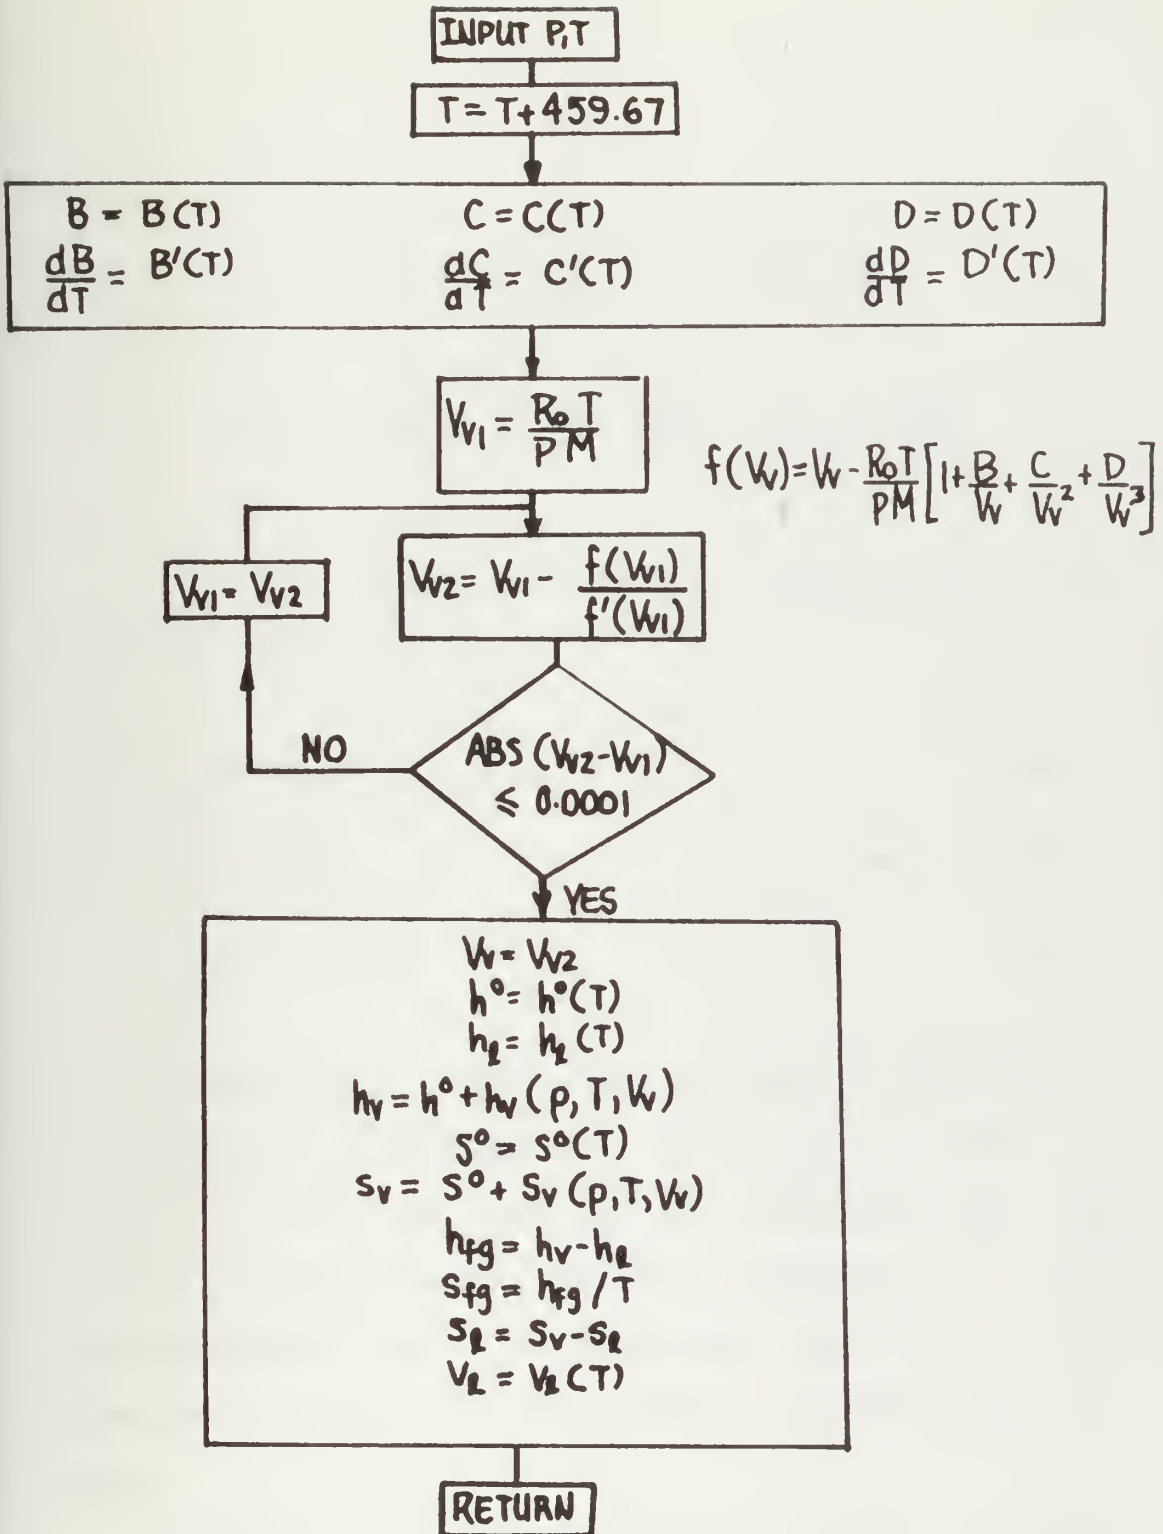 INPUT P,T
T = T+459.67
B = B(T)
C = C(T)
D = D(T)
dB/dT = B'(T)
dC/dT = C'(T)
dD/dT = D'(T)
Vv1 = R₀T/PM
f(Vv) = Vv - R₀T/PM [1 + B/Vv + C/Vv² + D/Vv³]
Vv1 = Vv2
Vv2 = Vv1 - f(Vv1)/f'(Vv1)
NO
ABS (Vv2-Vv1)
≤ 0.0001
YES
Vv = Vv2
h° = h°(T)
hℓ = hℓ(T)
hv = h° + hv(p,T,Vv)
s° = s°(T)
sv = s° + sv(p,T,Vv)
hfg = hv - hℓ
sfg = hfg / T
sℓ = sv - sℓ
Vℓ = Vℓ(T)
RETURN